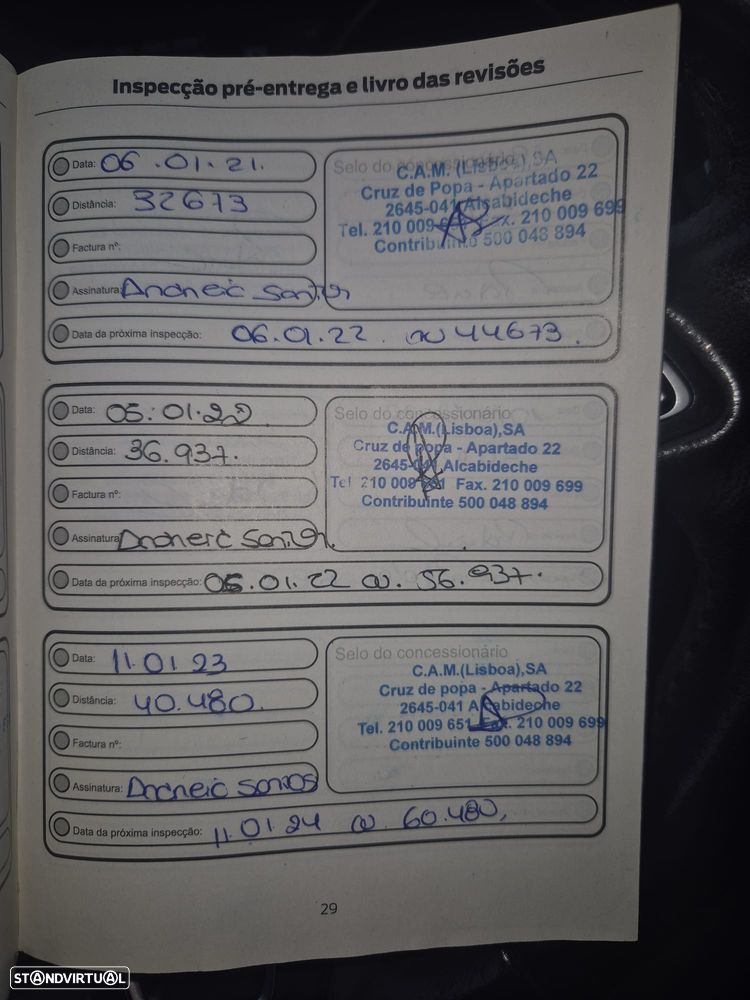 Inspecção pré-entrega e livro das revisões
Data: 06.01.21.
Distância: 32673
Factura nº:
Assinatura:
Data da próxima inspecção: 06.01.22. ou 44673.
Selo do concessionário
C.A.M. (Lisboa),SA
Cruz de Popa - Apartado 22
2645-041 Alcabideche
Tel. 210 009 Fax. 210 009 699
Contribuinte 500 048 894
Data: 05.01.22
Distância: 36.937.
Factura nº:
Assinatura:
Data da próxima inspecção: 05.01.22 ou. 56.937.
Selo do concessionário
C.A.M.(Lisboa),SA
Cruz de popa - Apartado 22
2645-041 Alcabideche
Tel 210 009 Fax. 210 009 699
Contribuinte 500 048 894
Data: 11.01.23
Distância: 40.480.
Factura nº:
Assinatura: Santos
Data da próxima inspecção: 11.01.24 ou 60.480,
Selo do concessionário
C.A.M.(Lisboa),SA
Cruz de popa - Apartado 22
2645-041 Alcabideche
Tel. 210 009 651 Fax. 210 009 699
Contribuinte 500 048 894
29
STANDVIRTUAL